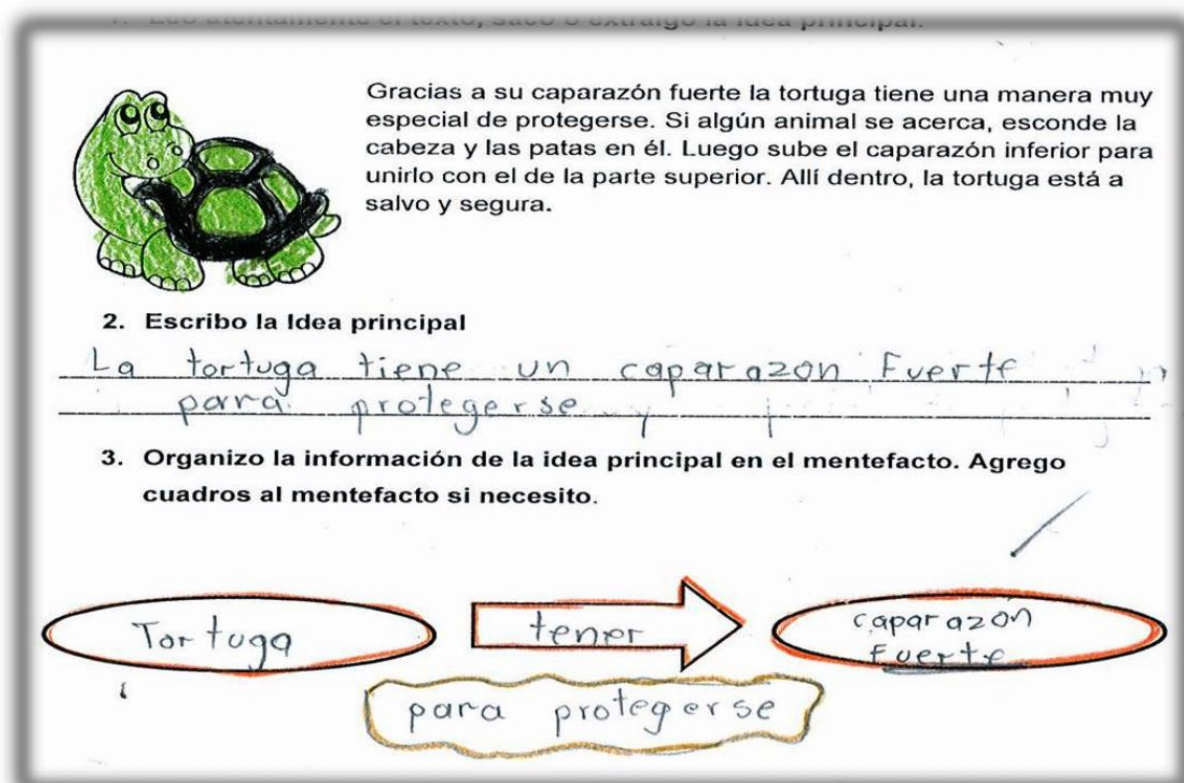 1. Leo atentamente el texto, saco o extraigo la idea principal.
Gracias a su caparazón fuerte la tortuga tiene una manera muy
especial de protegerse. Si algún animal se acerca, esconde la
cabeza y las patas en él. Luego sube el caparazón inferior para
unirlo con el de la parte superior. Allí dentro, la tortuga está a
salvo y segura.
2. Escribo la Idea principal
La tortuga tiene un caparazon Fuerte
para protegerse y
3. Organizo la información de la idea principal en el mentefacto. Agrego
cuadros al mentefacto si necesito.
Tortuga
tener
caparazón
Fuerte
para protegerse